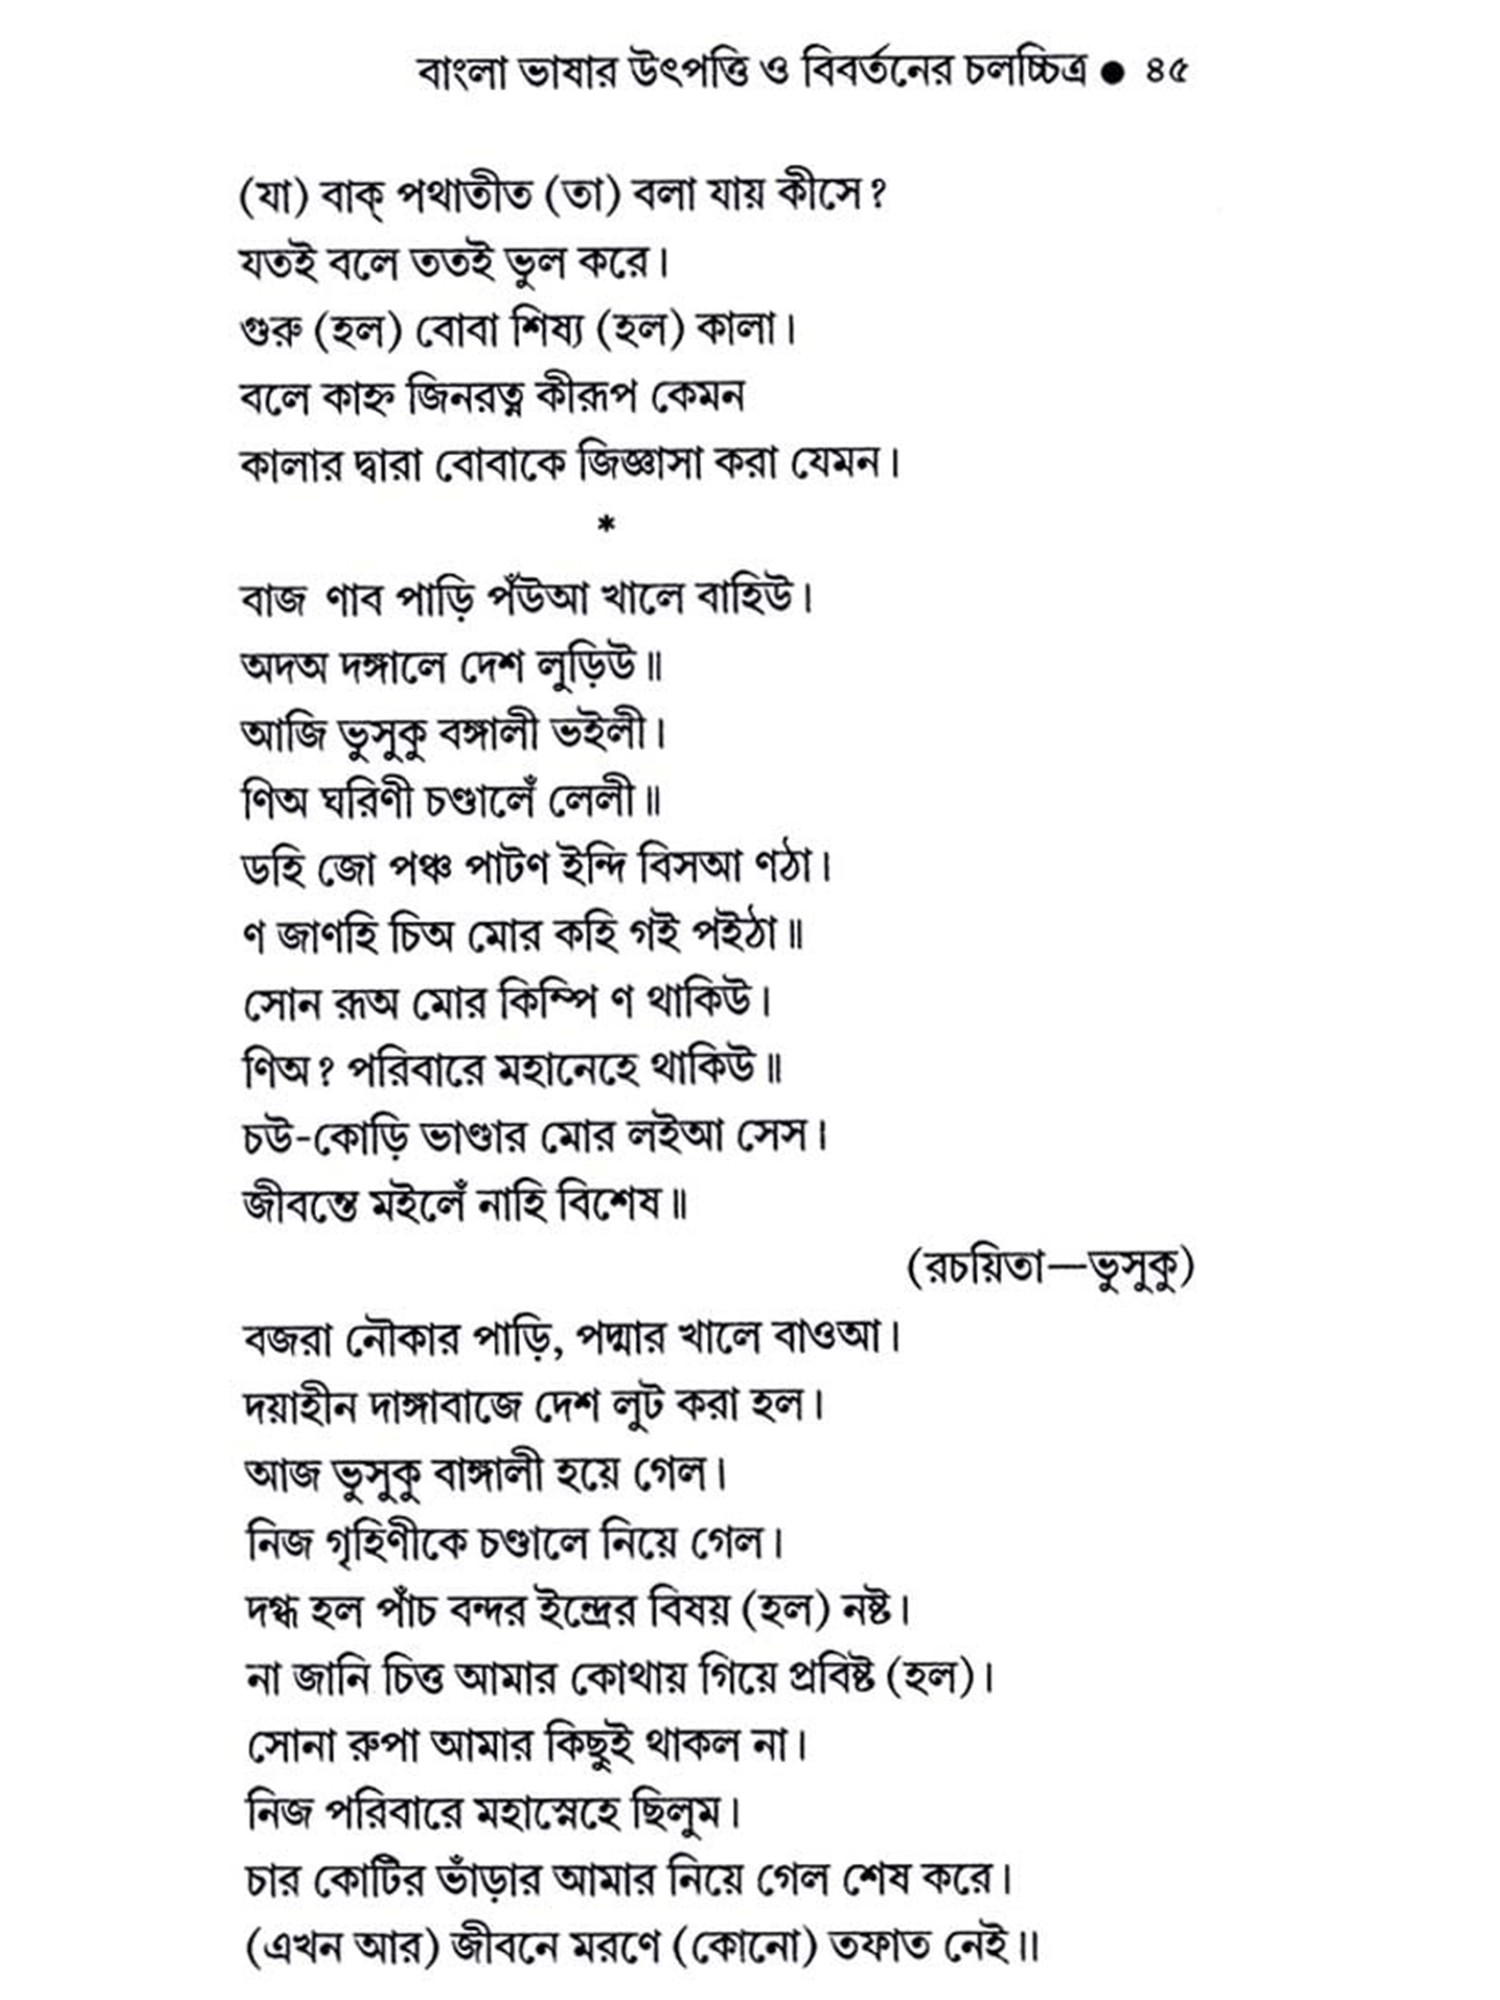 বাংলা ভাষার উৎপত্তি ও বিবর্তনের চলচ্চিত্র ● ৪৫
(যা) বাক্ পথাতীত (তা) বলা যায় কীসে?
যতই বলে ততই ভুল করে।
গুরু (হল) বোবা শিষ্য (হল) কালা।
বলে কাহ্ন জিনরত্ন কীরূপ কেমন
কালার দ্বারা বোবাকে জিজ্ঞাসা করা যেমন।
*
বাজ ণাব পাড়ি পঁউআ খালে বাহিউ।
অদঅ দঙ্গালে দেশ লুড়িউ॥
আজি ভুসুকু বঙ্গালী ভইলী।
ণিঅ ঘরিণী চণ্ডালেঁ লেলী॥
ডহি জো পঞ্চ পাটণ ইন্দি বিসআ ণঠা।
ণ জাণহি চিঅ মোর কহি গই পইঠা॥
সোন রূঅ মোর কিম্পি ণ থাকিউ।
ণিঅ? পরিবারে মহানেহে থাকিউ॥
চউ-কোড়ি ভাণ্ডার মোর লইআ সেস।
জীবন্তে মইলেঁ নাহি বিশেষ॥
(রচয়িতা—ভুসুকু)
বজরা নৌকার পাড়ি, পদ্মার খালে বাওআ।
দয়াহীন দাঙ্গাবাজে দেশ লুট করা হল।
আজ ভুসুকু বাঙ্গালী হয়ে গেল।
নিজ গৃহিণীকে চণ্ডালে নিয়ে গেল।
দগ্ধ হল পাঁচ বন্দর ইন্দ্রের বিষয় (হল) নষ্ট।
না জানি চিত্ত আমার কোথায় গিয়ে প্রবিষ্ট (হল)।
সোনা রুপা আমার কিছুই থাকল না।
নিজ পরিবারে মহাস্নেহে ছিলুম।
চার কোটির ভাঁড়ার আমার নিয়ে গেল শেষ করে।
(এখন আর) জীবনে মরণে (কোনো) তফাত নেই॥